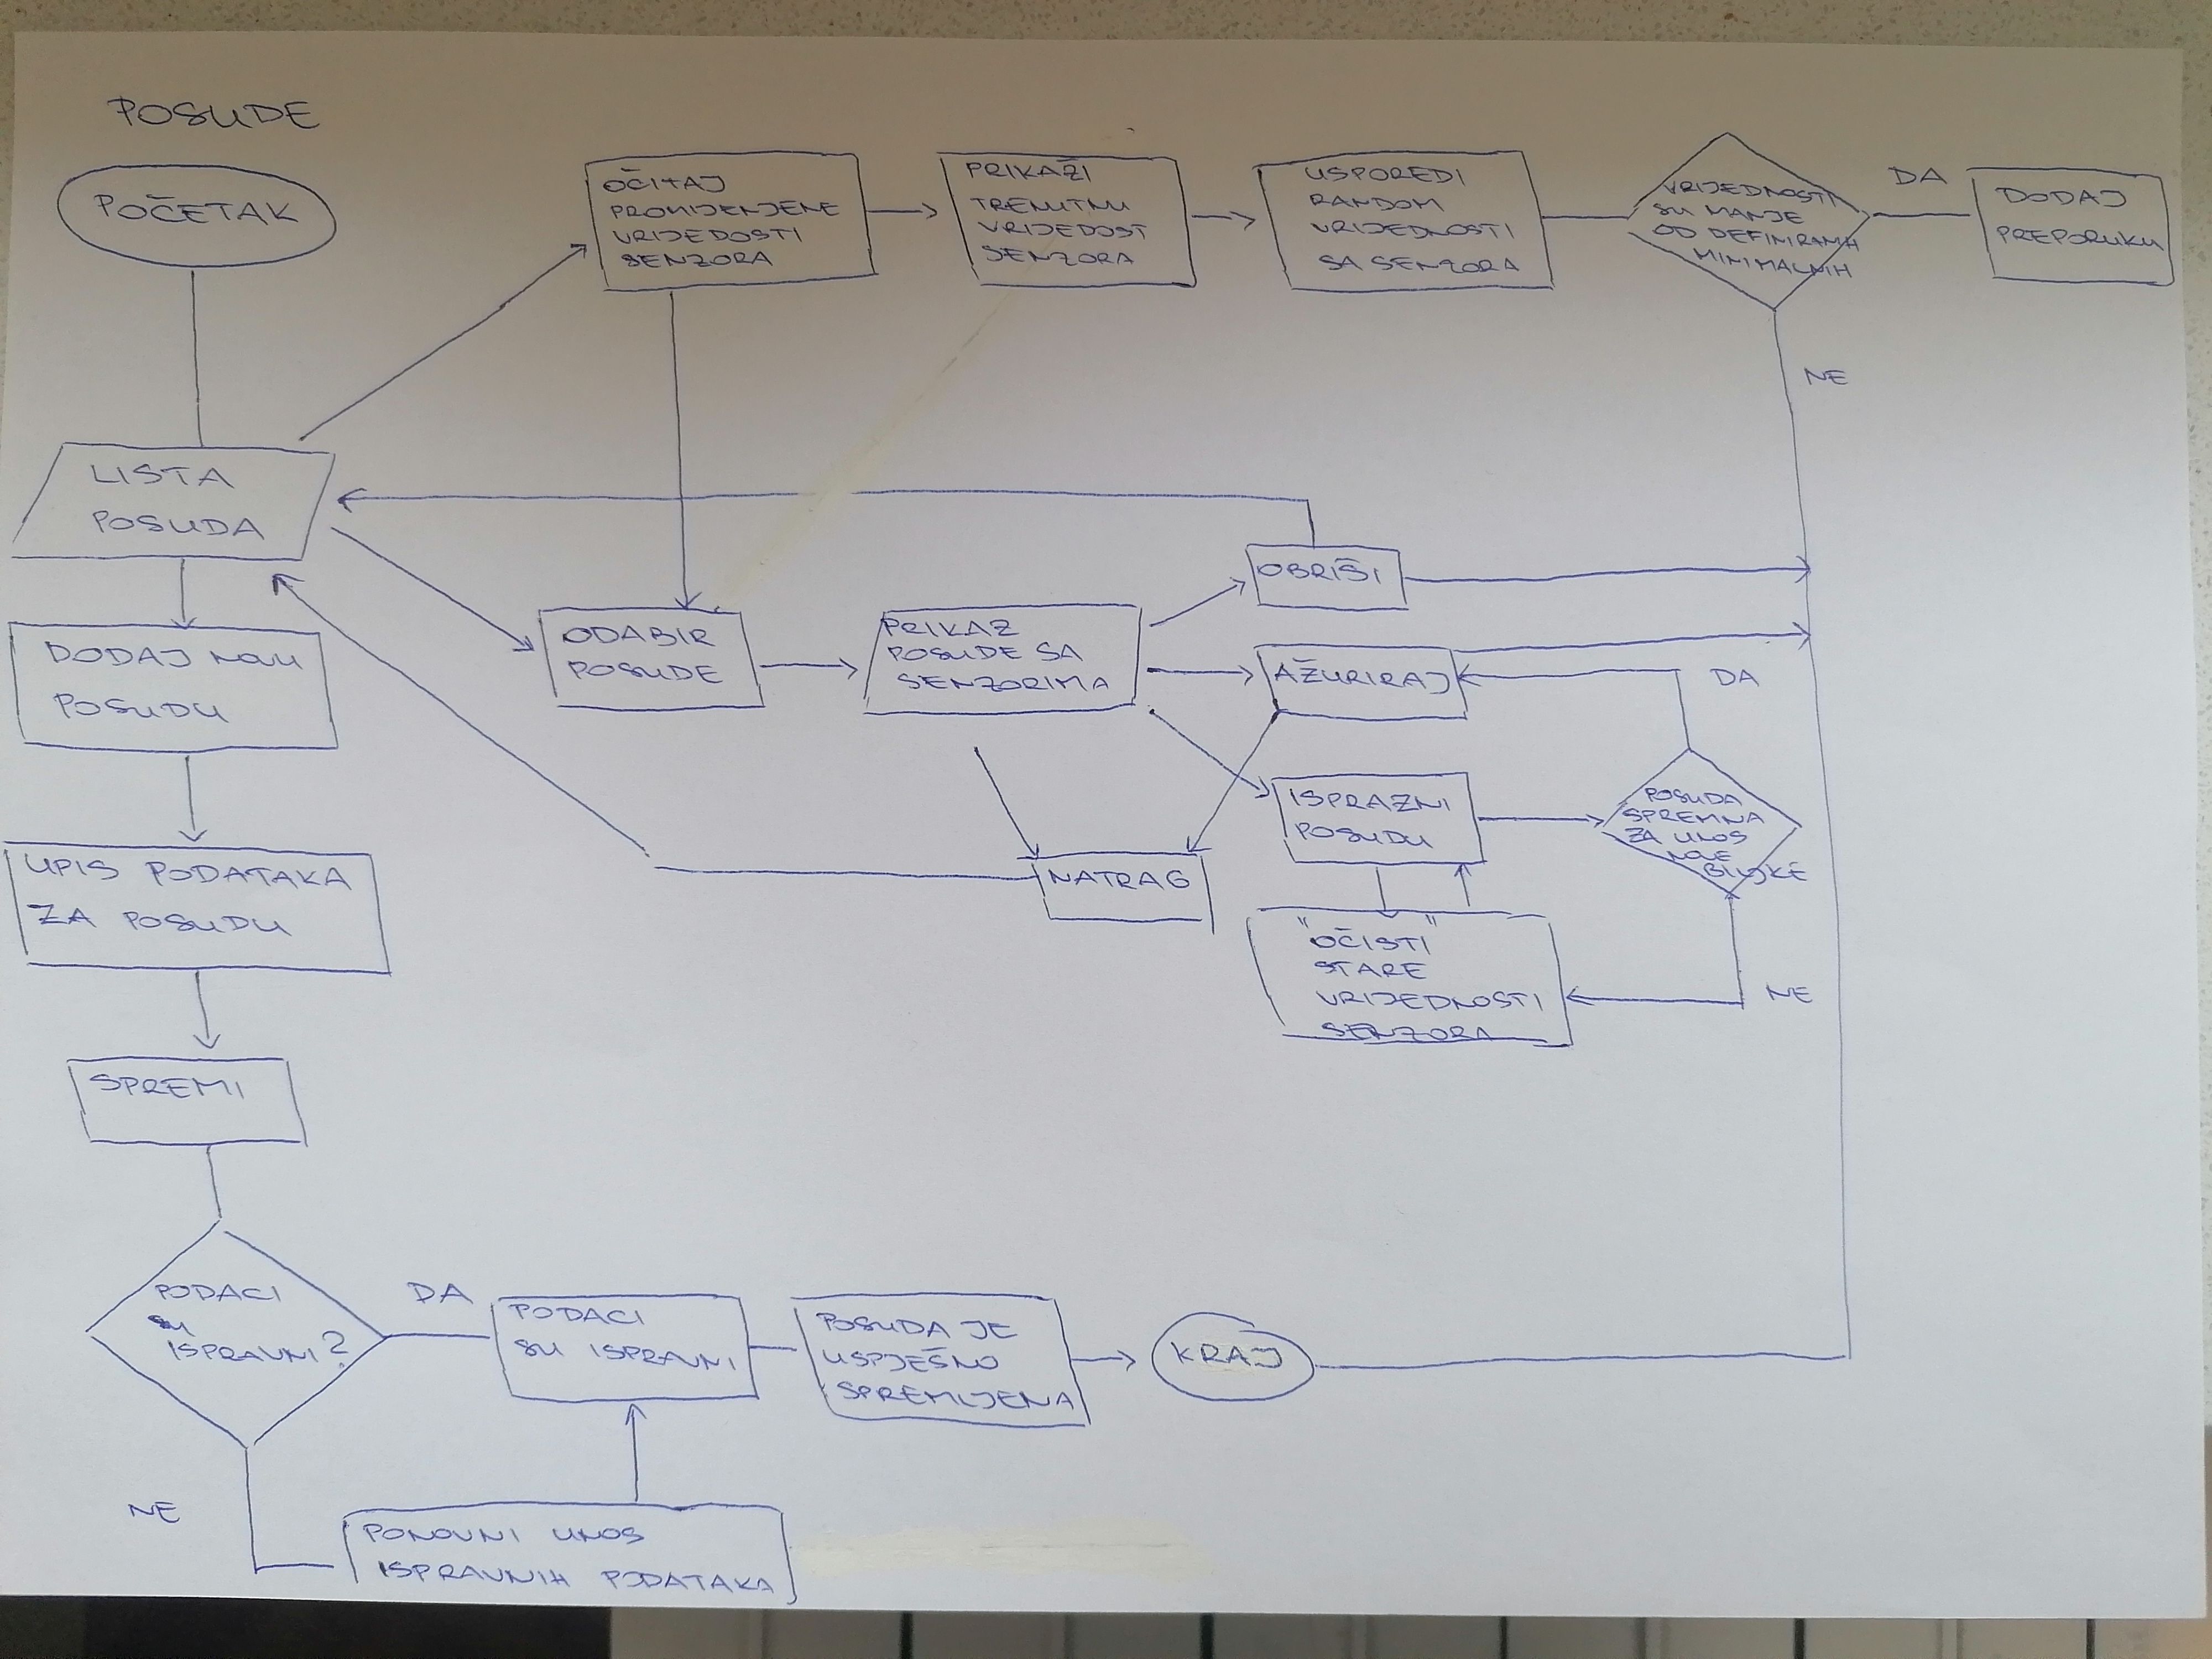 POSUDE
POČETAK
OČITAJ
PROMIJENJENE
VRIJEDOSTI
SENZORA
PRIKAŽI
TRENUTNU
VRIJEDOST
SENZORA
USPOREDI
RANDOM
VRIJEDNOSTI
SA SENZORA
VRIJEDNOSTI
SU MANJE
OD DEFINIRANIH
MINIMALNIH
DA
DODAJ
PREPORUKU
NE
LISTA
POSUDA
DODAJ NOVU
POSUDU
UPIS PODATAKA
ZA POSUDU
SPREMI
ODABIR
POSUDE
PRIKAZ
POSUDE SA
SENZORIMA
OBRIŠI
AŽURIRAJ
DA
ISPRAZNI
POSUDU
POSUDA
SPREMNA
ZA UNOS
NOVE
BILJKE
NATRAG
"OČISTI"
STARE
VRIJEDNOSTI
SENZORA
NE
PODACI
SU
ISPRAVNI?
DA
PODACI
SU ISPRAVNI
POSUDA JE
USPJEŠNO
SPREMLJENA
KRAJ
NE
PONOVNI UNOS
ISPRAVNIH PODATAKA